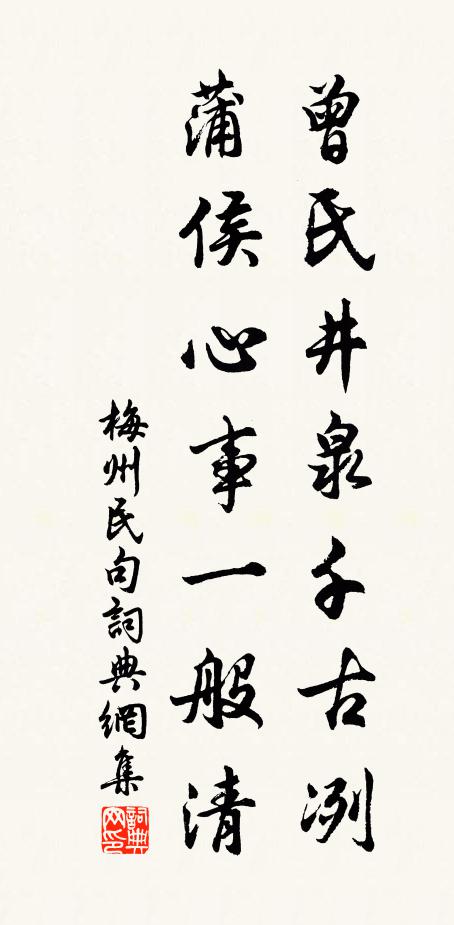 曾氏井泉千古冽
蒲侯心事一般清
梅州民句詞典網集
詞典网印